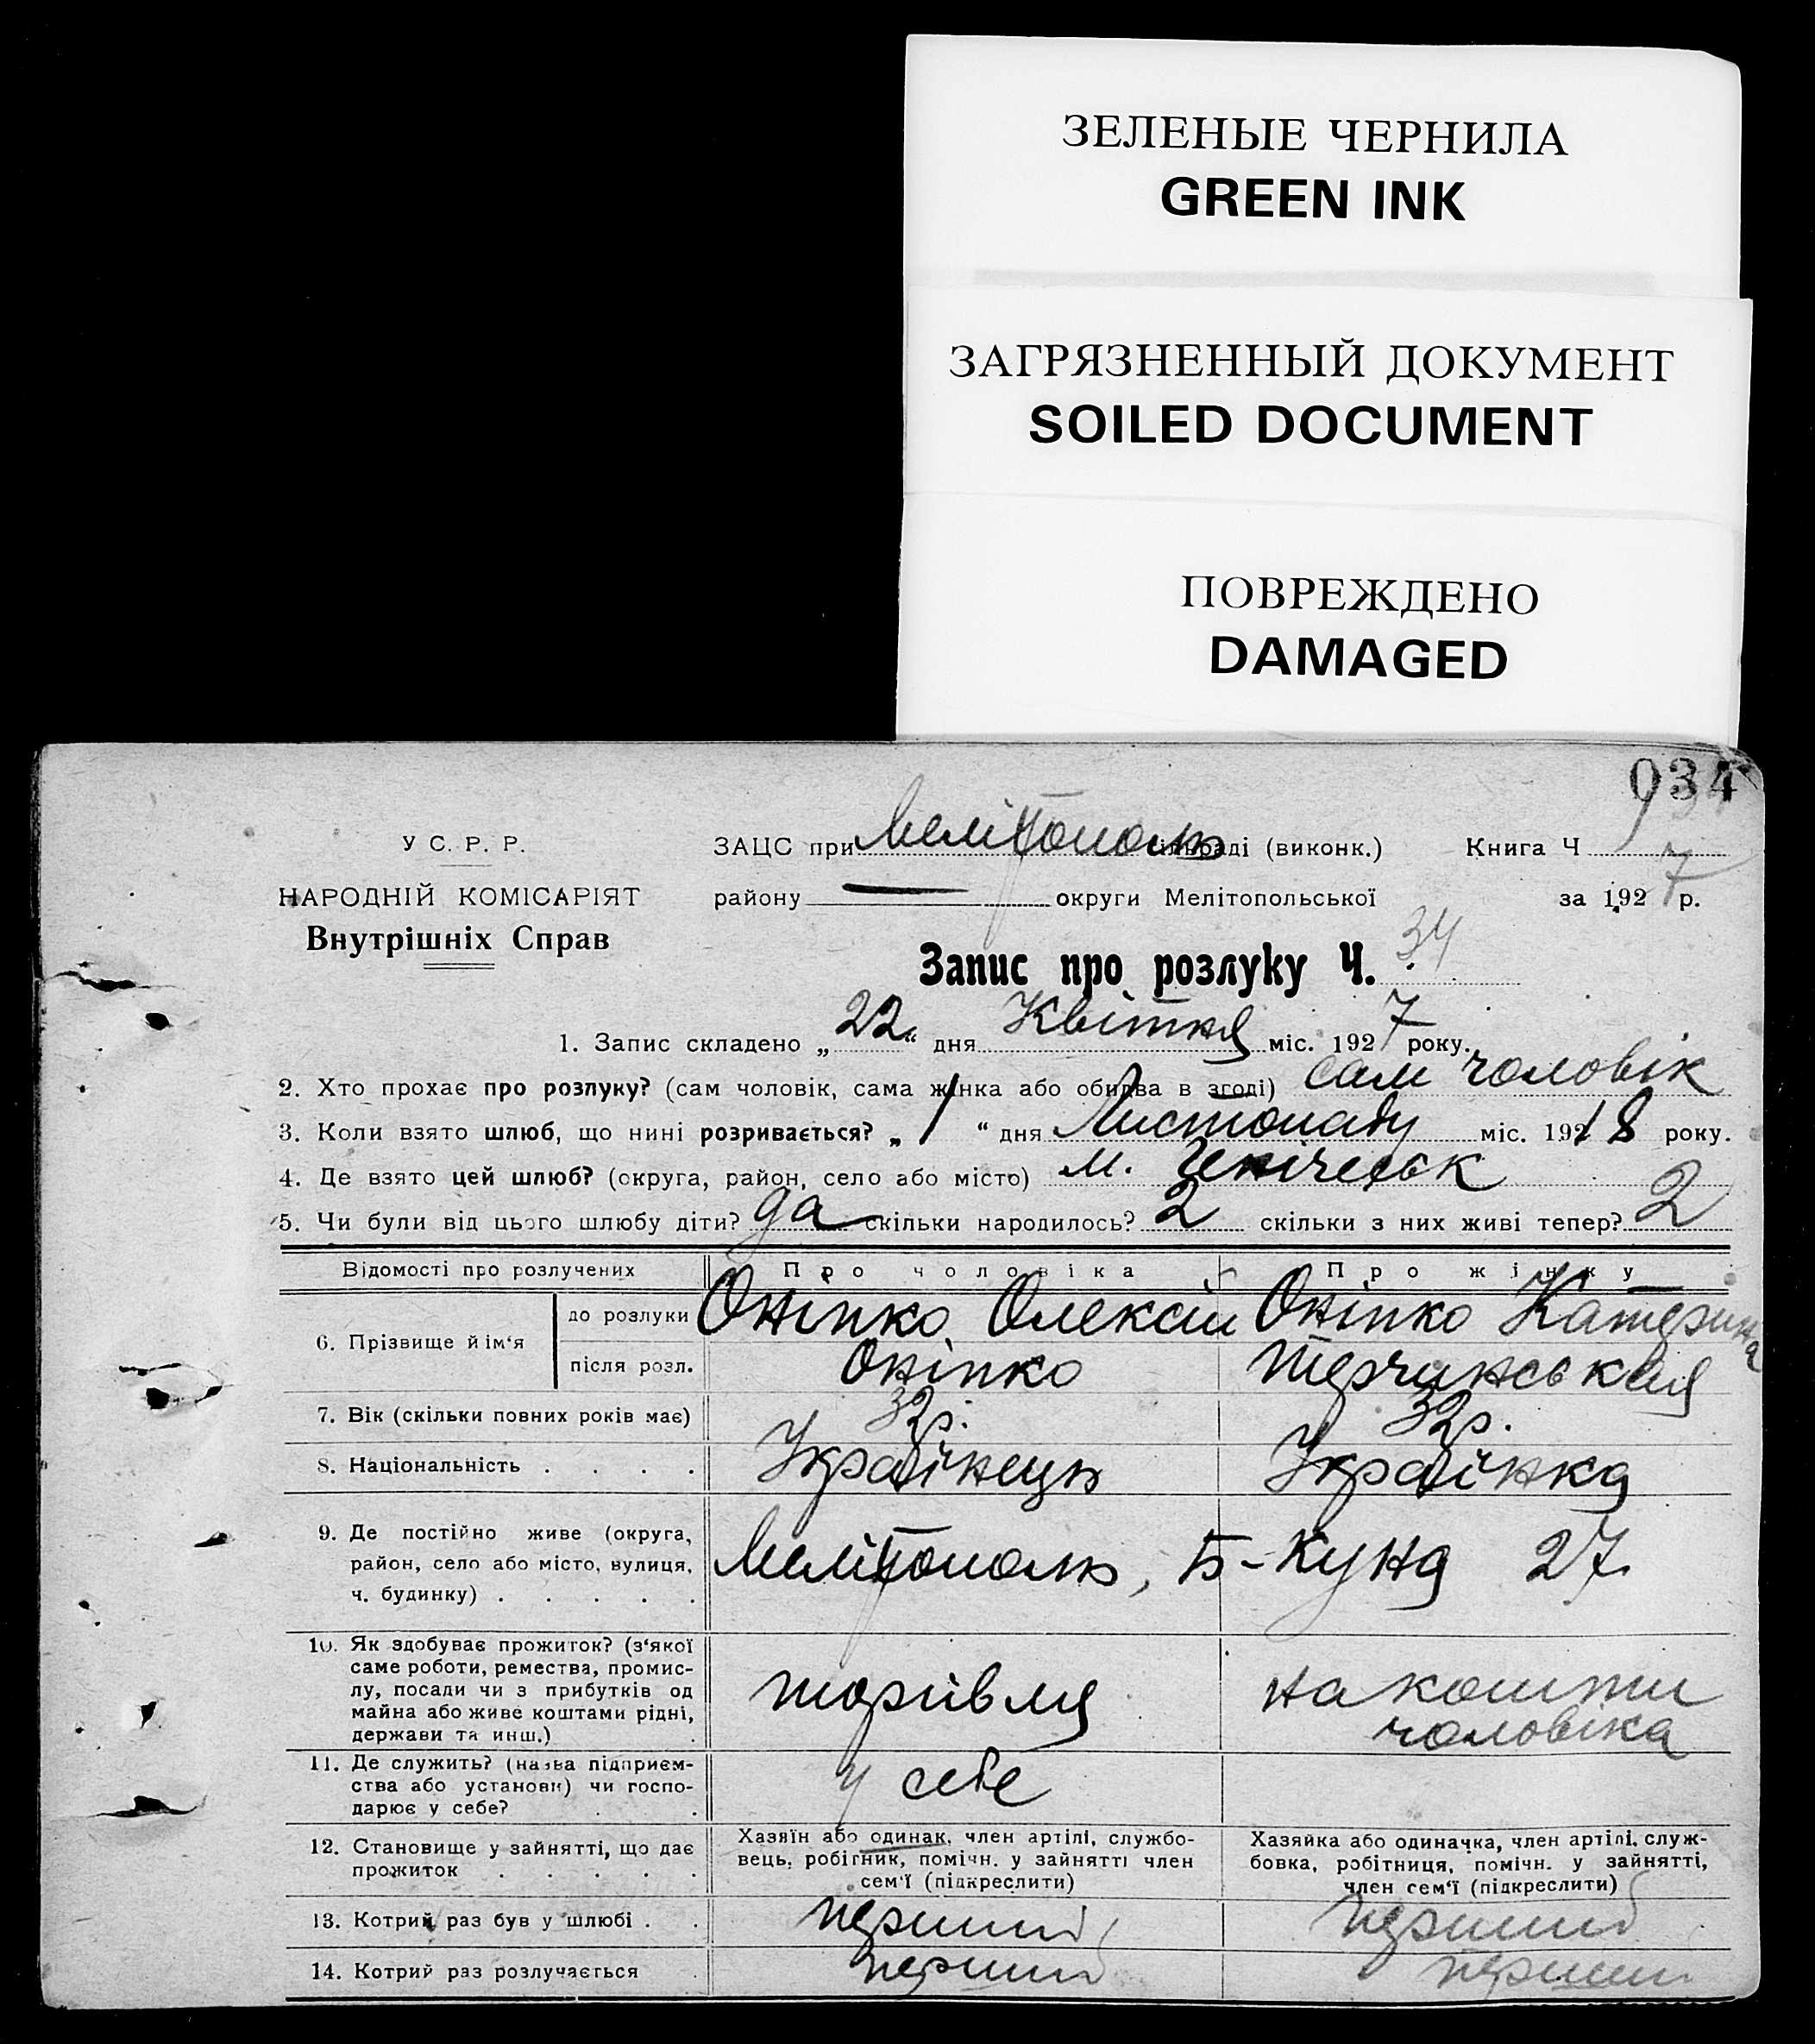 ЗЕЛЕНЫЕ ЧЕРНИЛА
GREEN INK
ЗАГРЯЗНЕННЫЙ ДОКУМЕНТ
SOILED DOCUMENT
ПОВРЕЖДЕНО
DAMAGED
034
У С. Р. Р.
НАРОДНІЙ КОМІСАРІЯТ
Внутрішніх Справ
ЗАЦС при Мелітополь сільраді (виконк.) Книга Ч
району — округи Мелітопольської за 1927 р.
Запис про розлуку Ч. 34
1. Запис складено „22“ дня Квітня міс. 1927 року.
2. Хто прохає про розлуку? (сам чоловік, сама жінка або обидва в згоді) сам чоловік
3. Коли взято шлюб, що нині розривається? „1“ дня Листопаду міс. 1918 року.
4. Де взято цей шлюб? (округа, район, село або місто) м. Генічеськ
5. Чи були від цього шлюбу діти? да скільки народилось? 2 скільки з них живі тепер? 2
Відомості про розлучених Про чоловіка Про жінку
6. Прізвище й ім'я до розлуки Оніпко Олексій Оніпко Катерина
після розл. Оніпко
7. Вік (скільки повних років має) 32р. 32р.
8. Національність . . . . Українець Українка
9. Де постійно живе (округа, район, село або місто, вулиця, ч. будинку) . . . . . Мелітополь, Б-Куна 27
10. Як здобуває прожиток? (з'якої саме роботи, ремества, промислу, посади чи з прибутків од майна або живе коштами рідні, держави та инш.) торгівля на кошти чоловіка
11. Де служить? (назва підприємства або установи) чи господарює у себе? у себе
12. Становище у зайнятті, що дає прожиток . . . . Хазяїн або одинак, член артілі, службовець, робітник, помічн. у зайнятті член сем'ї (підкреслити) Хазяйка або одиначка, член артілі, службовка, робітниця, помічн. у зайнятті, член сем'ї (підкреслити)
13. Котрий раз був у шлюбі . . перший перший
14. Котрий раз розлучається . перший перший